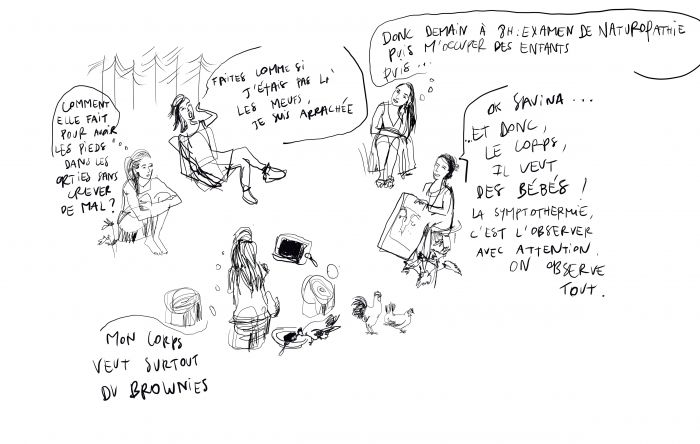 DONC DEMAIN À 8H: EXAMEN DE NATUROPATHIE
PUIS M'OCCUPER DES ENFANTS
PUIS...
FAITES COMME SI
J'ÉTAIS PAS LÀ
LES MEUFS,
JE SUIS ARRACHÉE
COMMENT
ELLE FAIT
POUR AVOIR
LES PIEDS
DANS LES
ORTIES SANS
CREVER
DE MAL ?
OK SAVINA...
...ET DONC,
LE CORPS,
IL VEUT
DES BÉBÉS !
LA SYMPTOTHERMIE,
C'EST L'OBSERVER
AVEC ATTENTION.
ON OBSERVE
TOUT.
MON CORPS
VEUT SURTOUT
DU BROWNIES